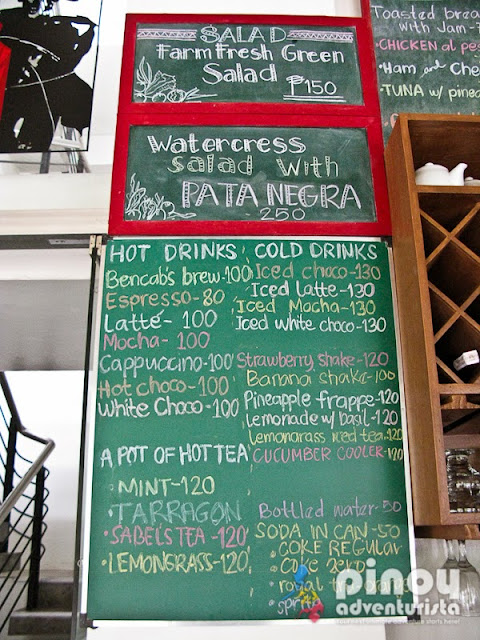 SALAD
Farm Fresh Green
Salad ₱150
Watercress
Salad with
PATA NEGRA
250
Toasted brea
with Jam-
•CHICKEN al pes
•Ham and Che
•TUNA w/ pinea
HOT DRINKS
Bencab's brew-100
Espresso-80
Latté-100
Mocha-100
Cappuccino-100
Hot choco-100
White Choco-100
COLD DRINKS
Iced choco-130
Iced Latte-130
Iced Mocha-130
Iced white choco-130
Strawberry shake-120
Banana shake-100
Pineapple frappe-120
Lemonade w/ basil-120
Lemongrass iced tea-120
CUCUMBER COOLER-120
A POT OF HOT TEA
•MINT-120
•TARRAGON
•SABEL'S TEA-120
•LEMONGRASS-120
Bottled water-50
SODA IN CAN-50
•COKE REGULAR
•coke zero
•royal tru orange
•sprite
pinoy
adventurista